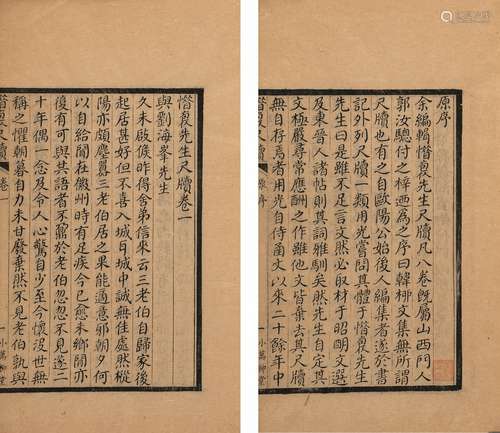 原序
余編輯惜裒先生尺牘凡八卷既屬山西門人
郭汝驄付之梓迺為之序曰韓栁文集無所謂
尺牘也有之自歐陽公始後人編集者遂於書
記外列尺牘一類用光嘗問其體于惜裒先生
先生曰是雖不足言文然必取材于昭明文選
及東晉人諸帖則其詞雅馴矣然先生自定其
文極嚴尋常應酬之作雖他文皆棄去其尺牘
無自存焉者用光自侍函文以來二十餘年中
惜裒尺牘
原序
惜裒先生尺牘卷一
與劉海峯先生
久未啟候昨得舍弟信來云三老伯自歸家後
起居甚好但不喜入城中誠無佳處然樅
陽亦頗塵囂三老伯居之果能適意邪朝夕何
以自給鼐在徽州時有足疾今已愈未鄉闈亦
復有可與共語者不鼐於老伯忽忽不見遂二
十年偶一念及令人心驚自少至今懷沒世無
稱之懼朝暮自力未甘廢棄然不見老伯孰與
惜裒尺牘
卷一
一
小萬柳堂